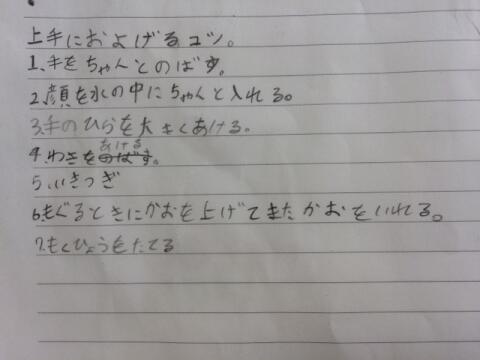 上手におよげるコツ。
1、手をちゃんとのばす。
2.顔を水の中にちゃんと入れる。
3.手のひらを大きくあける。
4.わきをあける。
5.いきつぎ
6.もぐるときにかおを上げてまたかおをいれる。
7.もくひょうをたてる